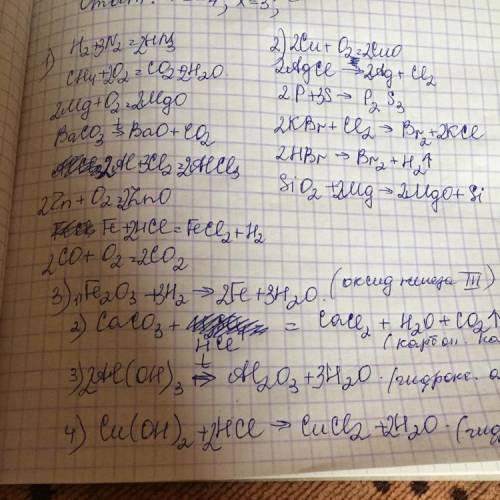 1) H₂+3N₂=2HN₃
CH₄+2O₂=CO₂+2H₂O
2Mg+O₂=2MgO
BaCO₃ →t BaO+CO₂
2Al+3Cl₂=2AlCl₃
2Zn+O₂=2ZnO
Fe+2HCl=FeCl₂+H₂
2CO+O₂=2CO₂
2) 2Cu+O₂=2CuO
2AgCl→2Ag+Cl₂
2P+3S→P₂S₃
2KBr+Cl₂→Br₂+2KCl
2HBr→Br₂+H₂↑
SiO₂+2Mg→2MgO+Si
3) 1) Fe₂O₃+3H₂→2Fe+3H₂O. (оксид железа III)
2) CaCO₃ + HCl = CaCl₂+H₂O+CO₂↑
3) 2Al(OH)₃ →t Al₂O₃+3H₂O.
4) Cu(OH)₂+2HCl→CuCl₂+2H₂O.